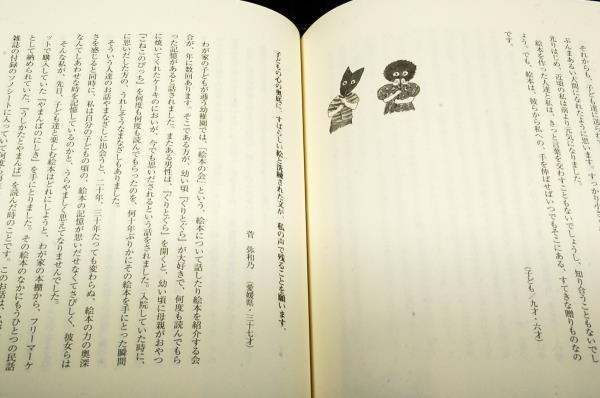 それからも、子ども達に送られ
ぶんまあるい人間になれたように思います。すっかり小さ
光りはじめ、近頃の私は前より元気になりました。
絵本を作った人達と私は、きっと言葉を交わすこともないでしょうし、知り合うこともないでし
ょう。でも、絵本は、彼らから私への、手を伸ばせばいつでもそこにある、すてきな贈りものなの
です。
（子ども／九才・六才）
子どもの心の奥底に、すばらしい絵と洗練された文が、私の声で残ることを願います。
菅 弥和乃（愛媛県・三十七才）
わが家の子どもが通う幼稚園では、「絵本の会」という、絵本について話したり絵本を紹介する会
合が、年に数回あります。そこである方が、幼い頃『ぐりとぐら』が大好きで、何度も読んでもら
った記憶があると話されました。またある男性は、『ぐりとぐら』を開くと、幼い頃に母親がおやつ
に焼いてくれたケーキのにおいが、今でも思いだされるという話をされました。入院していた時に、
『こねこのぴっち』を何度も何度も読んでもらったのを、何十年ぶりかにその絵本を手にとった瞬間
に思いだした方の、うれしそうなまなざしもありました。
そういう人達のお話やまなざしに出会うと、二十年、三十年たっても変わらぬ、絵本の力の奥深
さを感じると同時に、私は自分の子どもの頃の、絵本の記憶が思いだせなくてさびしく、彼女らは
なんてしあわせな時を記憶しているのかと、うらやましく思えてなりませんでした。
そんな私が、先日、子ども達と楽しむ絵本はどれにしようと、わが家の本棚から、フリーマーケ
ットで購入していた『やまんばのにしき』を手にとりました。その絵本のなかにもうひとつの民話
として納められていた、『うしかたとやまんば』を読んだ時のことです。このお話は、
雑誌の付録のソノシートに入っていて何度も